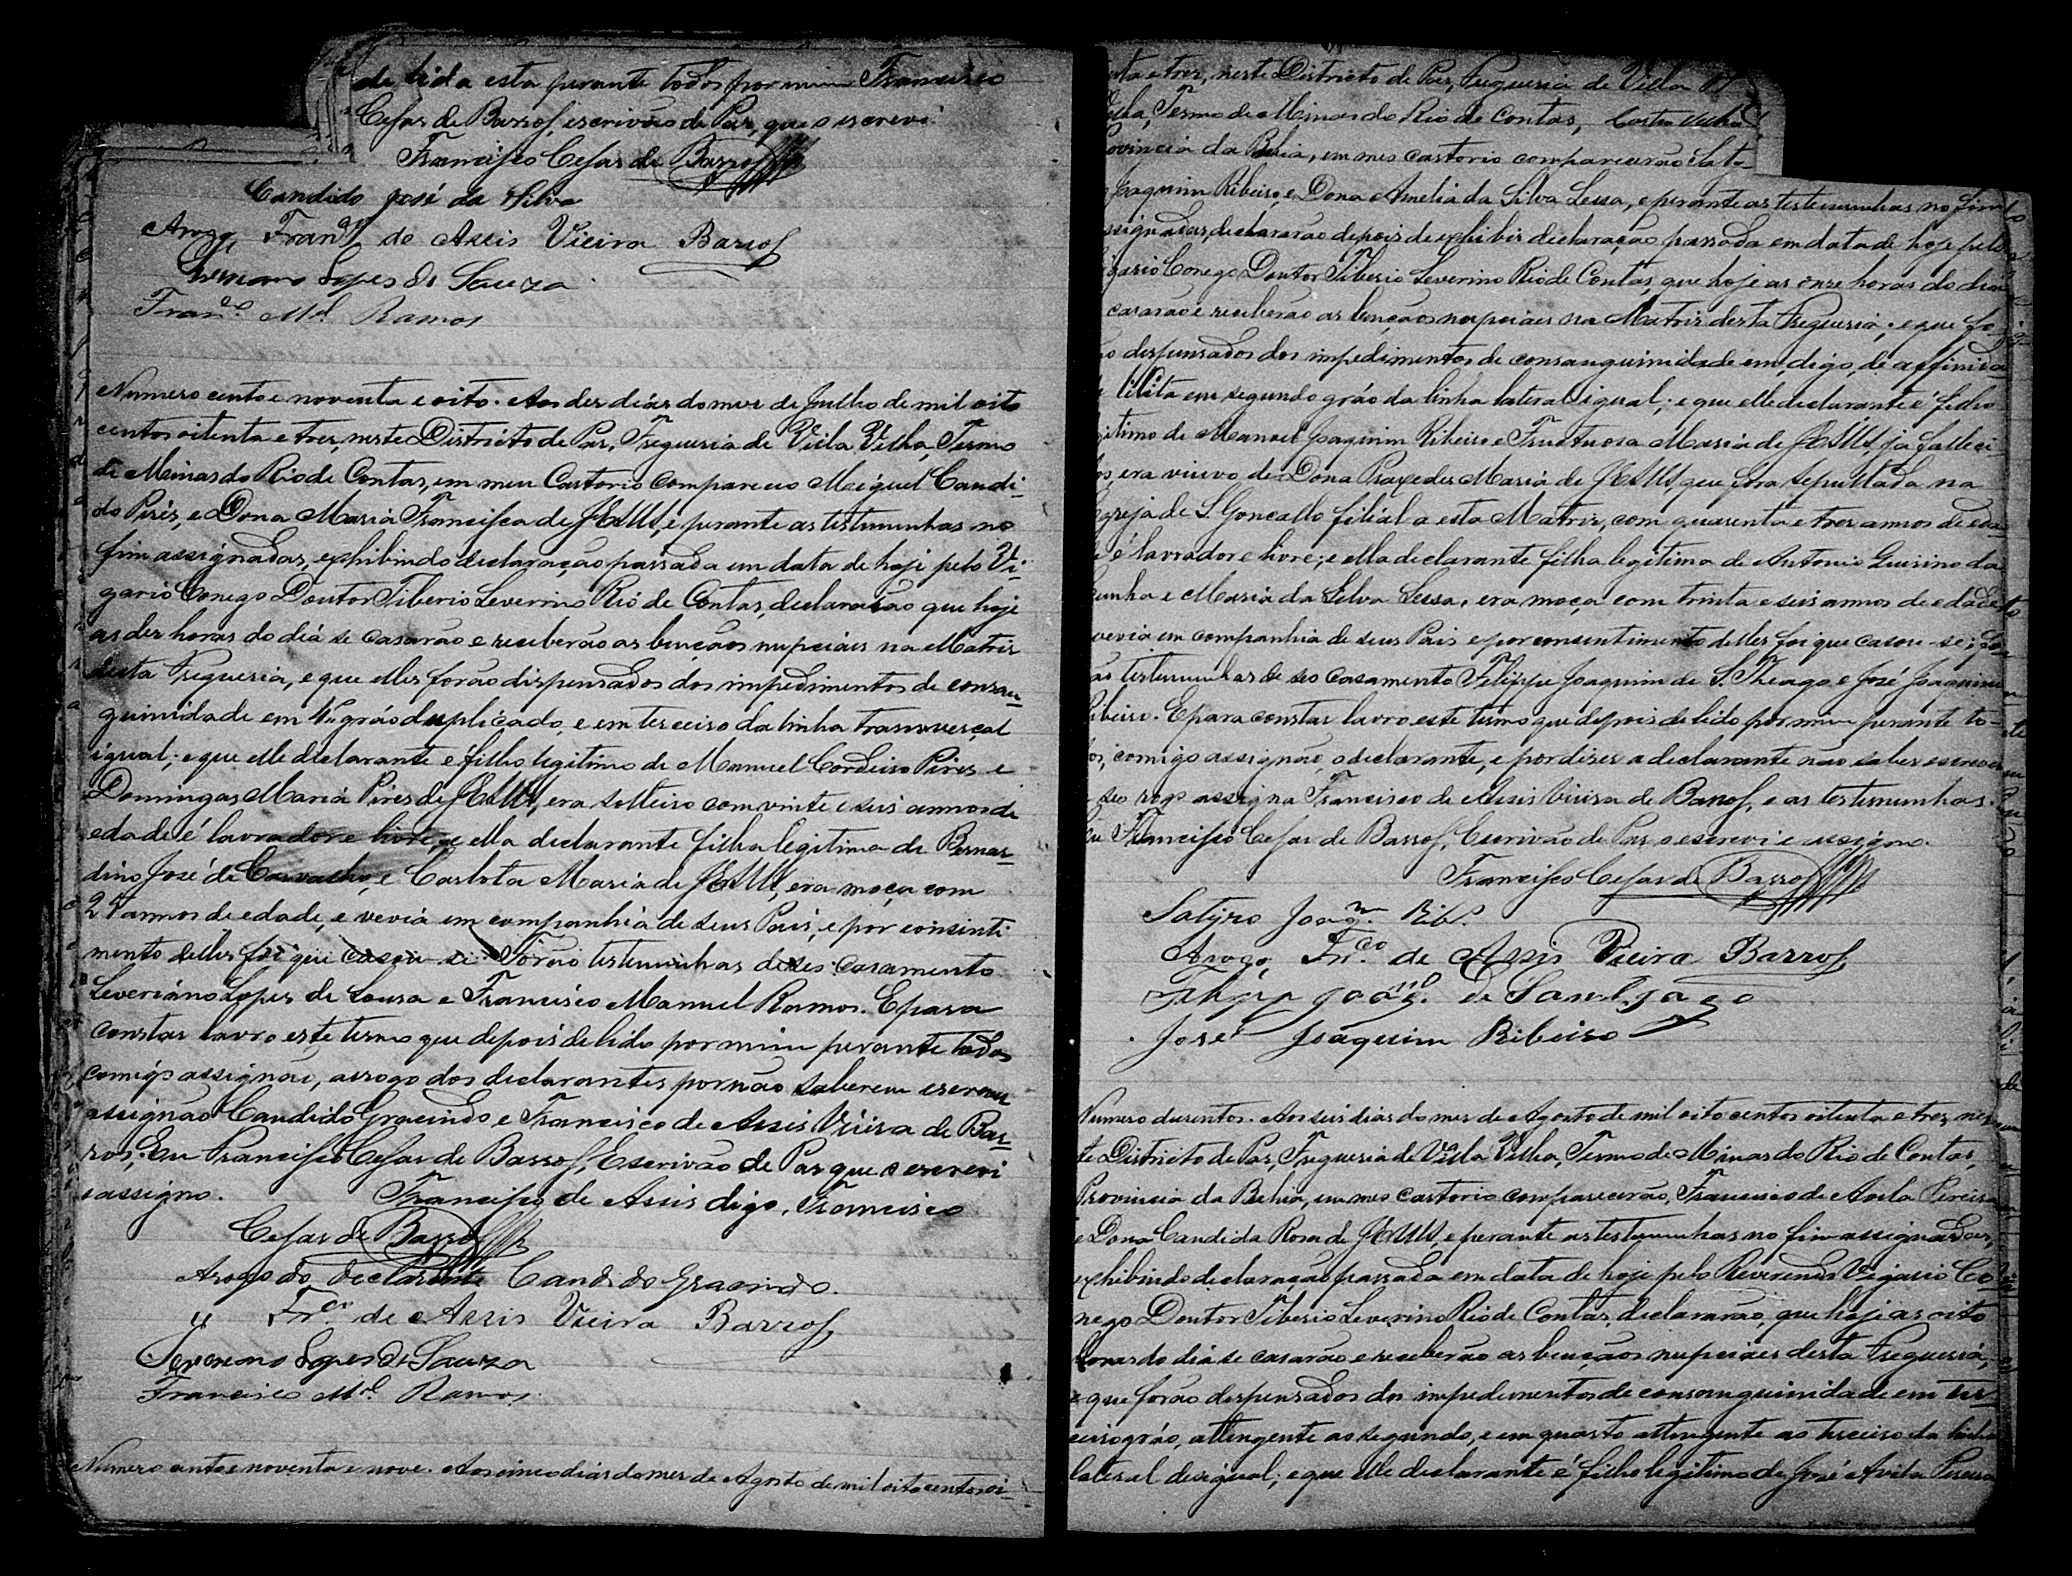 de lida esta perante todos por mim Francisco
Cesar de Barros, escrivão de Paz, que o escrevi.
Francisco Cesar de Barros
Candido José da Silva
Arogo Franco de Assis Vieira Barros
Lopes de Souza
Franco Mel Ramos
Numero cento e noventa e oito. Aos dez dias do mez de Julho de mil oito
centos oitenta e tres, neste Districto de Paz, Freguesia de Villa Velha, Termo
de Minas do Rio de Contas, em meu Cartorio compareceo Miguel Candi-
do Pires, e Dona Maria Francisca de JESUS, e perante as testemunhas no
fim assignadas, exhibindo declaração passada em data de hoje pelo Vi-
gario Conego Doutor Tiberio Severino Rio de Contas, declararão que hoje
as dez horas do dia se casarão e receberão as benções nupciaes na Matriz
desta Freguesia, e que elles forão dispensados dos impedimentos de consan-
guinidade em 4º gráo duplicado, e em terceiro da linha transverçal
igual; e que elle declarante é filho legitimo de Manuel Cordeiro Pires e
Domingas Maria Pires de JESUS, era solteiro com vinte e seis annos de
edade é lavrador e livre, e ella declarante filha legitima de Bernar-
dino José de Carvalho, e Carlota Maria de JESUS, era moça com
annos de edade, e vevia em companhia de seus Pais, e por consinti
mento delles foi que casou-se. Forão testemunhas deseo casamento
Severiano Lopes de Sousa e Francisco Manuel Ramos. E para
constar lavro este termo que depois de lido por mim perante todos
comigo assignão, arrogo dos declarantes por não saberem escrever
assignão Candido Gracindo e Francisco de Assis Vieira de Bar-
ros, Eu Francisco Cesar de Barros, Escrivão de Paz que o escrevi
e assigno. Francisco de Assis digo, Francisco
Cesar de Barros
Arogo do declarante Candido Gracindo.
Fr.co de Assis Vieira Barros
Severiano Lopes de Souza
Francisco Mel Ramos.
Numero cento e noventa e nove. Aos cinco dias do mez de Agosto de mil oito centos oi-
tenta e tres, neste Districto de Paz, Freguesia de Villa
Velha, Termo de Minas do Rio de Contas,
Provincia da Bahia, em meo cartorio comparecerão Saty-
Joaquim Ribeiro, e Dona Amelia da Silva Lessa, e perante as testemunhas no fim
assignadas, declararão depois de exhibir declaração passada em data de hoje pelo
Vigario Conego Doutor Tiberio Severino Rio de Contas, que hoje as onze horas do dia
casarão e receberão as benções nupciaes na Matriz desta Freguesia; e que fo-
rão despensados dos impedimentos de consanguinidade em, digo, de affinida
illicita em segundo gráo da linha lateral igual; e que elle declarante é filho
legitimo de Manoel Joaquim Ribeiro e Fructuosa Maria de JESUS, já falleci
dos era viuvo de Dona Praxedes Maria de JESUS, que fora sepultada na
Igreja de S. Goncallo filial a esta Matriz, com quarenta e tres annos de eda
é lavrador e livre; e ella declarante filha legitima de Antonio Guirino da
Cunha e Maria da Silva Lessa, era moça com trinta e seis annos de edade,
vevia em companhia de seus Pais e por consentimento delles foi que casou-se; fo-
rão testemunhas de seo casamento Felippe Joaquim de S. Theago e José Joaquim
Ribeiro. E para constar lavro este termo que depois de lido por mim perante to-
dos, comigo assignão, o declarante, e por dizer a declarante não saber escrever
seo rogo assigna Francisco de Assis Vieira de Barros, e as testemunhas.
Eu Francisco Cesar de Barros, Escrivão de Paz o escrevi e assigno.
Francisco Cesar de Barros
Satyro Joaqm. Ribr.
Arogo Fr.co de Assis Vieira Barros
Joaqm. de Santiago
José Joaquim Ribeiro
Numero dusentos. Aos seis dias do mez de Agosto de mil oito centos oitenta e tres, nes
te Districto de Paz, Freguesia de Villa Velha, Termo de Minas do Rio de Contas,
Provincia da Bahia, em meo cartorio comparecerão, Francisco de Avila Pereira
e Dona Candida Rosa de JESUS, e perante as testemunhas no fim assignadas,
exhibindo declaração passada em data de hoje pelo Reverendo Vigario Co-
nego Doutor Tiberio Severino Rio de Contas, declararão, que hoje as oito
horas do dia se casarão e receberão as benções nupciaes desta Freguesia,
e que forão despensados dos impedimentos de consanguinidade em ter-
ceiro gráo, attengente ao segundo, e em quarto attingente ao terceiro da linha
lateral desigual; e que elle declarante é filho legitimo de José Avila Pereira